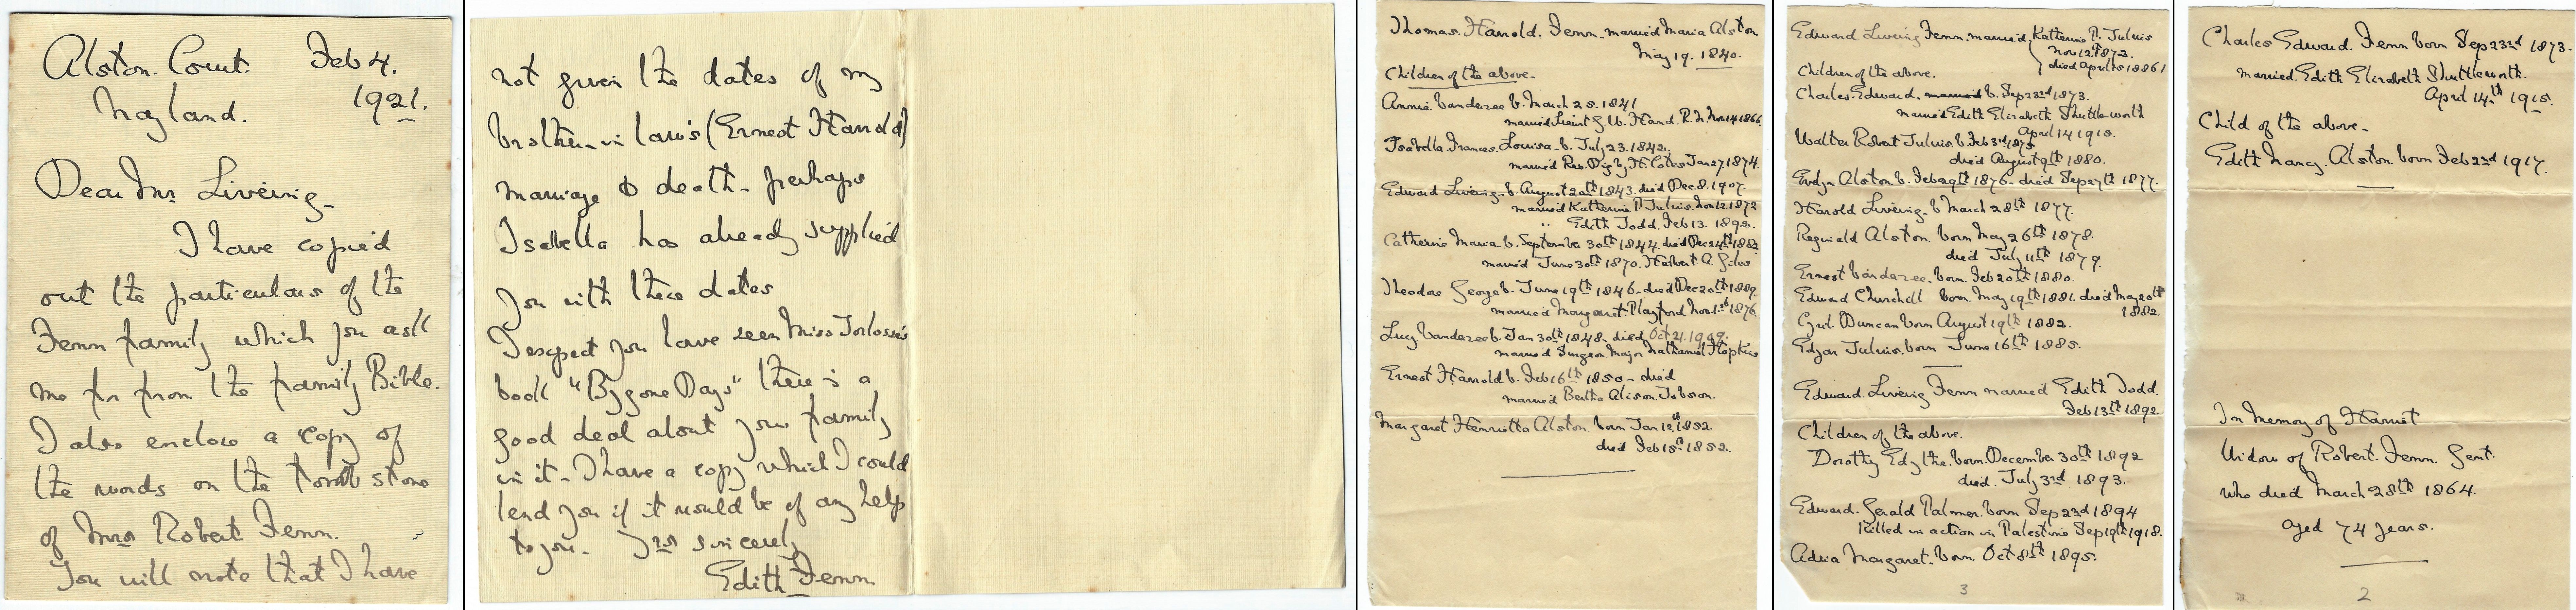 Alston Court. Feb 4.
Nayland. 1921.
Dear Mr Liveing_
I have copied
out the particulars of the
Fenn family which you ask
me for from the family Bible.
I also enclose a copy of
the words on the tomb stone
of Mrs Robert Fenn.
You will note that I have
not given the dates of my
brother-in law's (Ernest Harrold)
marriage & death_ perhaps
Isabella has already supplied
you with these dates
I expect you have seen Miss Torlosse's
book "Bygone Days" there is a
good deal about your family
in it_ I have a copy which I could
lend you if it would be of any help
to you_ Yrs sincerely
Edith Fenn.
Thomas Harrold. Fenn_ married Maria Alston.
May 19. 1840.
Children of the above_
Annie. Vanderzee b. March 25. 1841
married Lieut G.W. Hand. R.N. Nov 14 1866.
Isabella. Frances. Louisa_ b. July 23. 1842.
married Rev. Digby H. Cotes Jan 27 1874.
Edward Liveing_ b. August 20th 1843. died Dec. 8. 1907.
married Katherine P. Julius. Nov 12. 1872
" Edith Todd. Feb 13. 1892.
Catherine Maria_ b. September 30th 1844. died Dec 24th 1882
married June 30th 1870. Herbert A. Giles
Theodore George b. June 19th 1846_ died Dec 20th 1889.
married Margaret. Playford Nov. 1st 1876.
Lucy Vanderzee b. Jan 30th 1848_ died Oct 21. 1909.
married Surgeon. Major Nathaniel Hopkins
Ernest Harrold b. Feb 16th 1850_ died
married Bertha Alison. Jobson.
Margaret Henrietta Alston. born Jan 12th 1852
died Feb 15th 1852.
Edward Liveing Fenn_ married Katherine P. Julius
Nov 12. 1872.
died April 15 1886
Children of the above.
Charles. Edward. married b. Sep 23rd 1873.
married Edith Elizabeth Shuttleworth
April 14 1915.
Walter Robert Julius. b. Feb 3rd 1875
died August 9th 1880.
Evelyn Alston b. Feb 29th 1876_ died Sep 27th 1877.
Harold Liveing_ b March 28th 1877.
Reginald Alston. born May 26th 1878.
died July 11th 1879.
Ernest Vanderzee_ born. Feb 20th 1880.
Edward Churchill born. May 19th 1881. died May 20th
1882.
Cyril Duncan born August 19th 1882.
Edgar Julius. born June 16th 1885.
Edward. Liveing Fenn married Edith Todd.
Feb 13th 1892.
Children of the above.
Dorothy Edythe. born. December 30th 1892
died. July 3rd 1893.
Edward. Gerald Palmer. born Sep 23rd 1894
Killed in action in Palestine Sep 19th 1918.
Adria Margaret_ born. Oct 8th 1895.
3
Charles Edward. Fenn born Sep 23rd 1873.
married. Edith Elizabeth Shuttleworth.
April 14th 1915.
Child of the above_
Edith Nancy. Alston. born Feb 22nd 1917.
In Memory of Harriet
Widow of Robert. Fenn. Gent.
who died March 28th 1864.
aged 74 years.
2